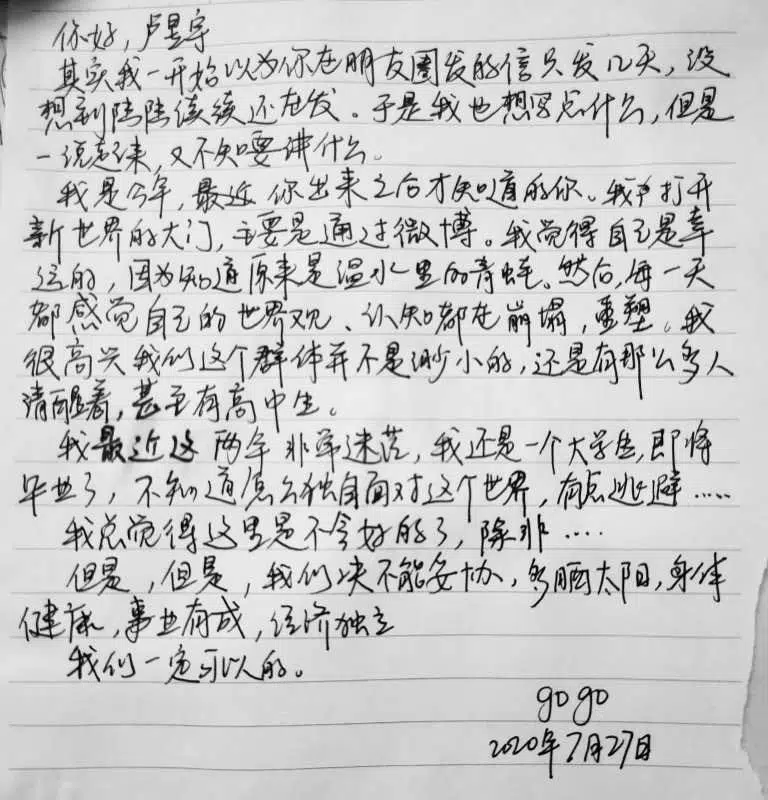 你好，卢昱宇
其实我一开始以为你在朋友圈发的信只发几天，没
想到陆陆续续还在发。于是我也想写点什么，但是
一说起来，又不知要讲什么。
我是今年，最近你出来之后才知道的你。我打开
新世界的大门，主要是通过微博。我觉得自己是幸
运的，因为知道原来是温水里的青蛙。然后，每一天
都感觉自己的世界观、认知都在崩塌，重塑。我
很高兴我们这个群体并不是渺小的，还是有那么多人
清醒着，甚至有高中生。
我最近这两年非常迷茫，我还是一个大学生，即将
毕业了，不知道怎么独自面对这个世界，有点逃避……
我总觉得这里是不会好的了，除非……
但是，但是，我们决不能妥协，多晒太阳，身体
健康，事业有成，经济独立
我们一定可以的。
gogo
2020年7月27日